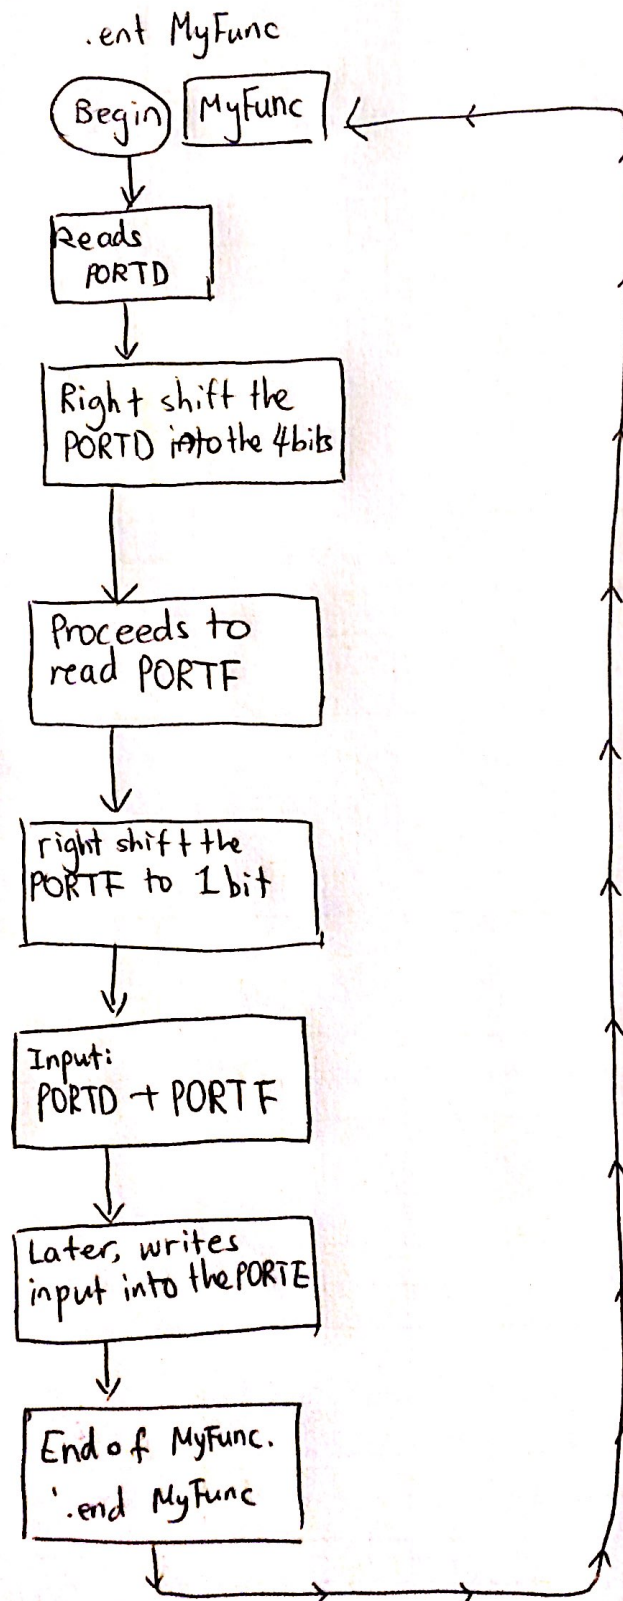 .ent MyFunc
Begin MyFunc
Reads
PORTD
Right shift the
PORTD into the 4 bits
Proceeds to
read PORTF
right shift the
PORTF to 1 bit
Input:
PORTD + PORTF
Later, writes
input into the PORTE
End of MyFunc.
'.end MyFunc